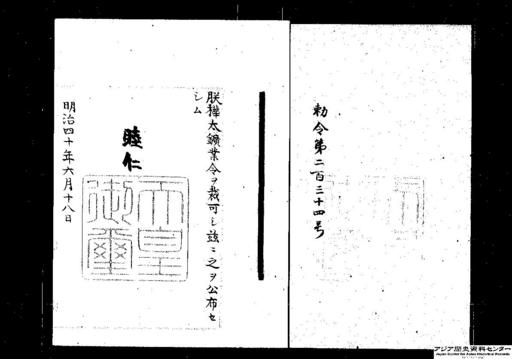 勅令第二百三十四号
朕樺太鑛業令ヲ裁可シ茲ニ之ヲ公布セ
シム
睦仁
天皇
御璽
明治四十年六月十八日
アジア歴史資料センター
Japan Center for Asian Historical Records